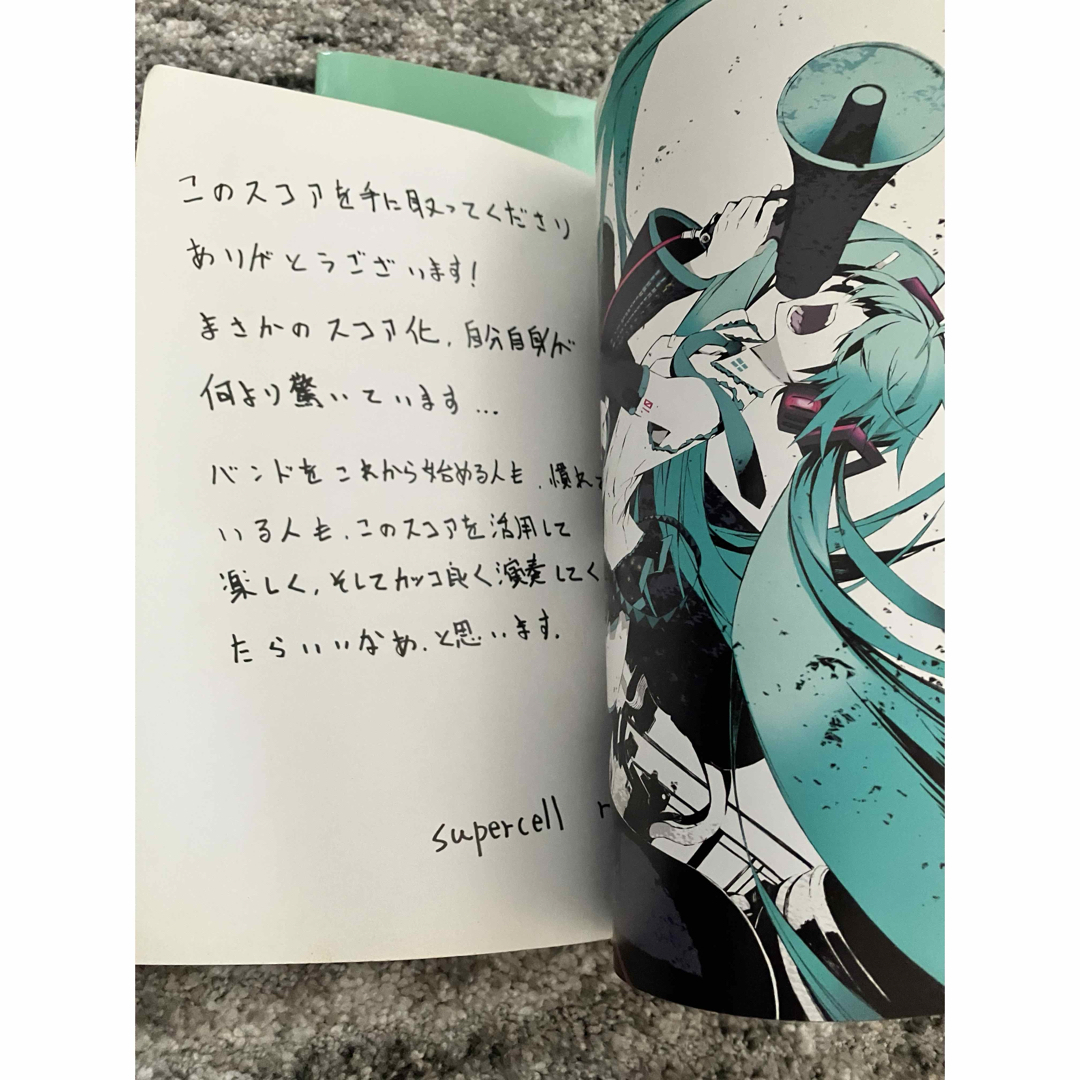 このスコアを手に取ってくださり
ありがとうございます!
まさかのスコア化、自分自身が
何より驚いています…
バンドをこれから始める人も、慣れて
いる人も、このスコアを活用して
楽しく、そしてカッコ良く演奏してく
たらいいなぁ、と思います。
supercell r